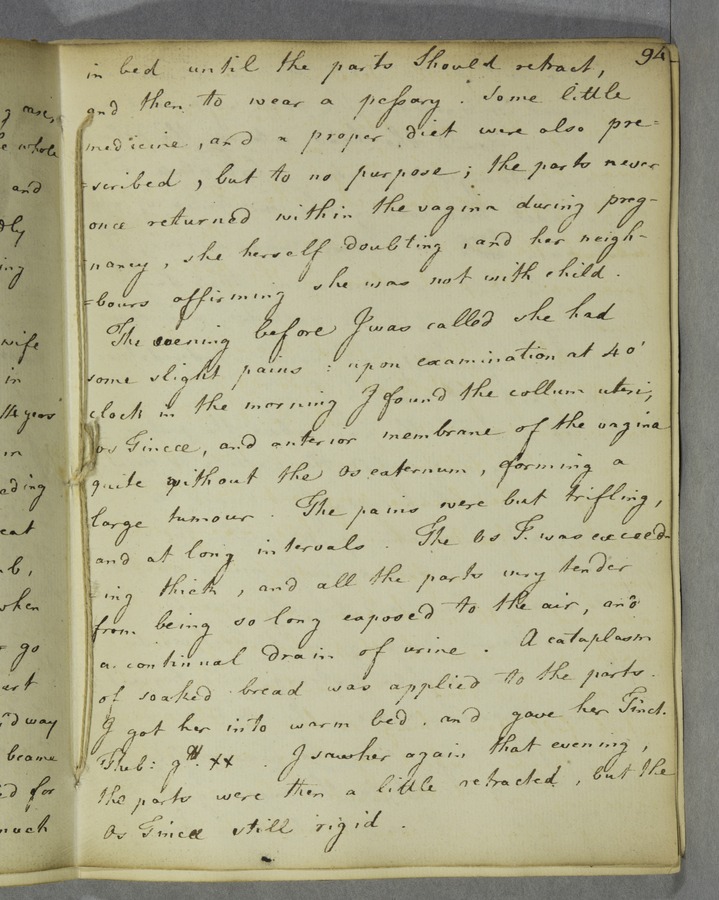 94
in bed until the parts should retract,
and then to wear a peſsary. Some little
medicine, and a proper diet were also pre=
=scribed, but to no purpose; the parts never
once returned within the vagina during preg-
-nancy, she herself doubting, and her neigh-
=bours affirming she was not with child.
The evening before I was called she had
some slight pains: upon examination at 4 o'
clock in the morning I found the collum uteri,
os Tincæ, and anterior membrane of the vagina
quite without the os externum, forming a
large tumour. The pains were but trifling,
and at long intervals. The Os T. was exceed-
-ing thick, and all the parts very tender
from being so long exposed to the air, and
a continual drain of urine. A cataplasm
of soaked bread was applied to the parts.
I got her into warm bed, and gave her Tinct.
Theb: gtt. xx. I saw her again that evening,
the parts were then a little retracted, but the
Os Tincæ still rigid.
whole
and
dly
ing
wife
in
years
in
eding
eat
b,
when
go
art
way
became
ed for
much